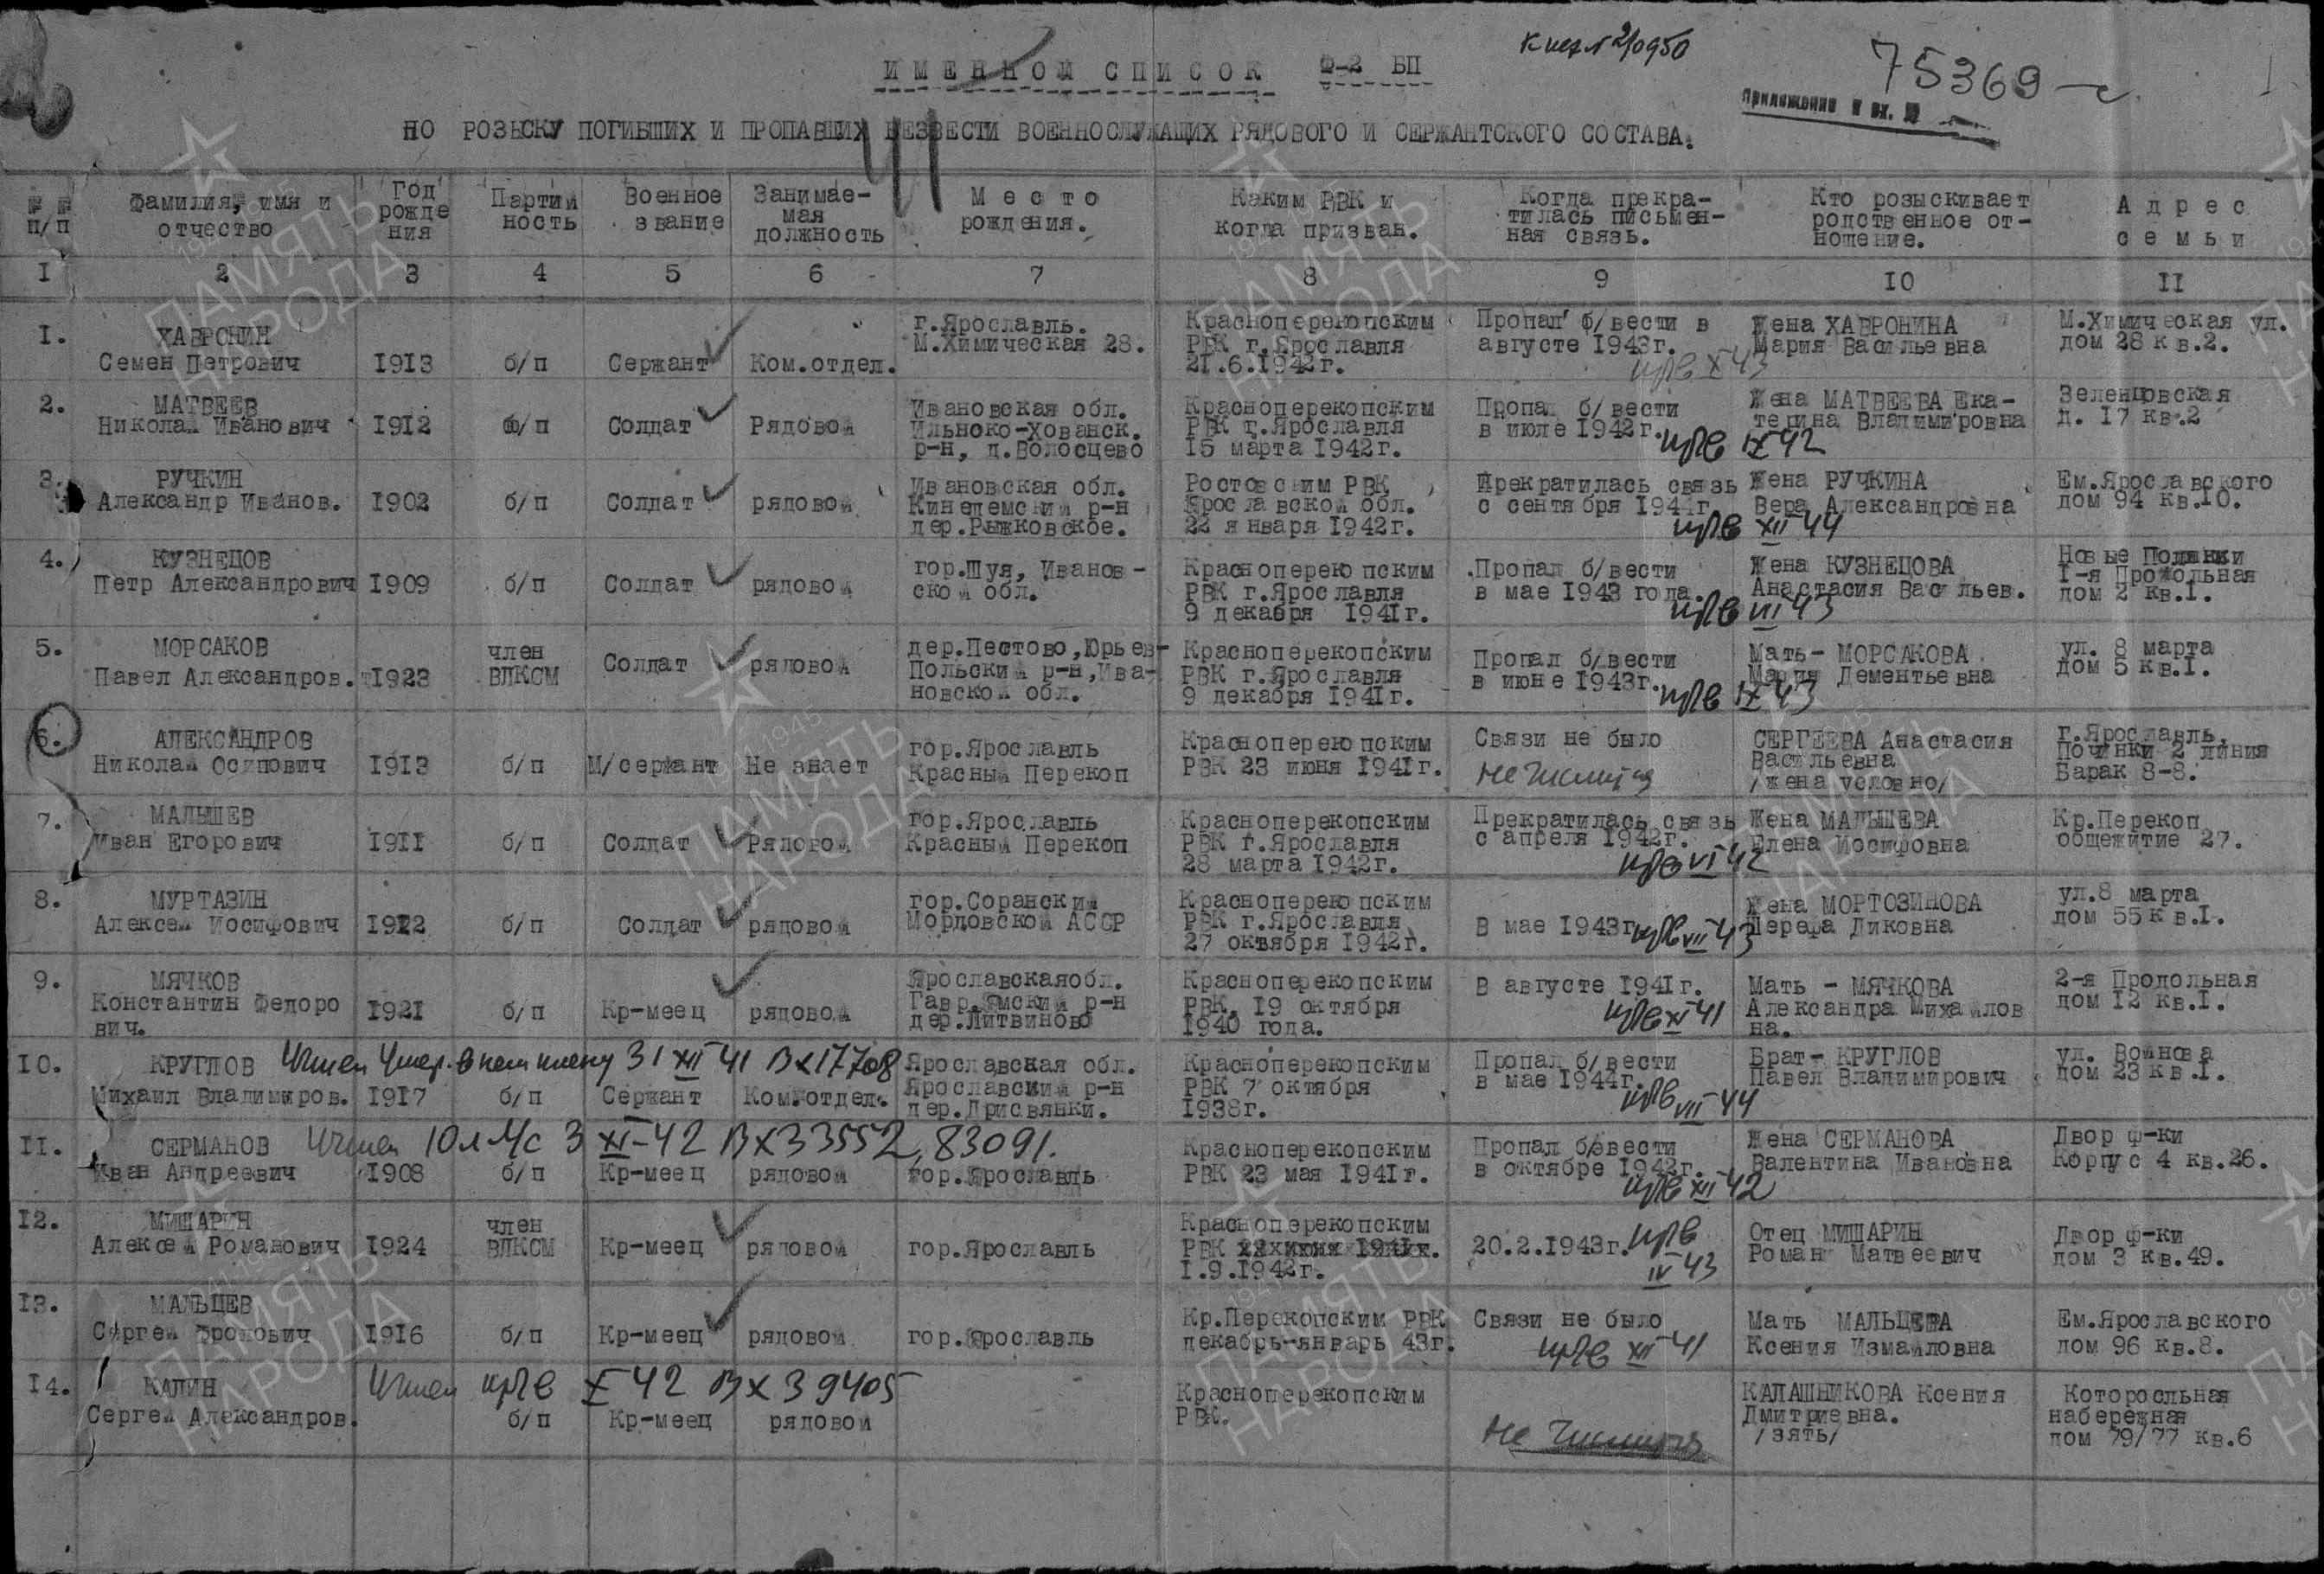 ИМЕННОЙ СПИСОК Ф-2 БП
75369-с
Приложение к вх. №
ПО РОЗЫСКУ ПОГИБШИХ И ПРОПАВШИХ БЕЗВЕСТИ ВОЕННОСЛУЖАЩИХ РЯДОВОГО И СЕРЖАНТСКОГО СОСТАВА.
№ № п/п
Фамилия, имя и отчество
Год рождения
Партийность
Военное звание
Занимаемая должность
Место рождения.
Каким РВК и когда призван.
Когда прекратилась письменная связь.
Кто розыскивает родственное отношение.
Адрес семьи
I 2 3 4 5 6 7 8 9 10 II
I. ХАВРОНИН Семен Петрович
1913 б/п Сержант Ком.отдел.
г.Ярославль. М.Химическая 28.
Красноперекопским РВК г.Ярославля 21.6.1942г.
Пропал б/вести в августе 1943г.
прв X 43
Жена ХАВРОНИНА Мария Васильевна
М.Химическая ул. дом 28 кв.2.
2. МАТВЕЕВ Николай Иванович
1912 б/п Солдат Рядовой
Ивановская обл. Ильнско-Хованск. р-н, д.Волосцево
Красноперекопским РВК г.Ярославля 15 марта 1942г.
Пропал б/вести в июле 1942г.
прв IX 42
Жена МАТВЕЕВА Екатерина Владимировна
Зеленцовская д. 17 кв.2
3. РУЧКИН Александр Иванов.
1902 б/п Солдат рядовой
Ивановская обл. Кинешемский р-н дер.Рыжковское.
Ростовским РВК Ярославской обл. 22 января 1942г.
Прекратилась связь с сентября 1944г
прв XII 44
Жена РУЧКИНА Вера Александровна
Ем.Ярославского дом 94 кв.10.
4. КУЗНЕЦОВ Петр Александрович
1909 б/п Солдат рядовой
гор.Шуя, Ивановской обл.
Красноперекопским РВК г.Ярославля 9 декабря 1941г.
Пропал б/вести в мае 1943 года.
прв VII 43
Жена КУЗНЕЦОВА Анастасия Васильев.
Новые 1-я Продольная дом 2 кв.I.
5. МОРСАКОВ Павел Александров.
1923 член ВЛКСМ Солдат рядовой
дер.Пестово,Юрьев-Польский р-н,Ивановской обл.
Красноперекопским РВК г.Ярославля 9 декабря 1941г.
Пропал б/вести в июне 1943г.
прв IX 43
Мать- МОРСАКОВА Мария Дементьевна
ул. 8 марта дом 5 кв.I.
6. АЛЕКСАНДРОВ Николай Осипович
1913 б/п М/сержант Не знает
гор.Ярославль Красный Перекоп
Красноперекопским РВК 23 июня 1941г.
Связи не было
Не числится
СЕРГЕЕВА Анастасия Васильевна /жена условно/
г.Ярославль, Починки 2 линия Барак 8-8.
7. МАЛЫШЕВ Иван Егорович
1911 б/п Солдат Рядовой
гор.Ярославль Красный Перекоп
Красноперекопским РВК г.Ярославля 28 марта 1942г.
Прекратилась связь с апреля 1942г.
прв VI 42
Жена МАЛЫШЕВА Елена Иосифовна
Кр.Перекоп общежитие 27.
8. МУРТАЗИН Алексей Иосифович
1922 б/п Солдат рядовой
гор.Соранский Мордовской АССР
Красноперекопским РВК г.Ярославля 27 октября 1942г.
В мае 1943г
прв VII 43
Жена МОРТОЗИНОВА Шерефа Диковна
ул.8 марта дом 55 кв.I.
9. МЯЧКОВ Константин Федорович.
1921 б/п Кр-меец рядовой
Ярославскаяобл. Гавр.Ямский р-н дер.Литвиново
Красноперекопским РВК. 19 октября 1940 года.
В августе 1941г.
прв XI 41
Мать - МЯЧКОВА Александра Михайловна.
2-я Продольная дом 12 кв.I.
10. КРУГЛОВ Михаил Владимиров.
Учтен умер. в нем плену 31 XII 41 Вх17708
1917 б/п Сержант Ком.отдел.
Ярославская обл. Ярославский р-н дер.Дрисвянки.
Красноперекопским РВК 7 октября 1938г.
Пропал б/вести в мае 1944г.
прв VII 44
Брат- КРУГЛОВ Павел Владимирович
ул. Войнова дом 23 кв.I.
II. СЕРМАНОВ Иван Андреевич
Учтен 3 XI-42 ВХ33552, 83091.
1908 б/п Кр-меец рядовой
гор.Ярославль
Красноперекопским РВК 23 мая 1941г.
Пропал б/вести в октябре 1942г.
прв XII 42
Жена СЕРМАНОВА Валентина Ивановна
Двор ф-ки Корпус 4 кв.26.
12. МИШАРИН Алексей Романович
1924 член ВЛКСМ Кр-меец рядовой
гор.Ярославль
Красноперекопским РВК 1.9.1942г.
20.2.1943г.
прв IV 43
Отец МИШАРИН Роман Матвеевич
Двор ф-ки дом 3 кв.49.
13. МАЛЬЦЕВ Сергей Фролович
1916 б/п Кр-меец рядовой
гор.Ярославль
Кр.Перекопским РВК декабрь-январь 43г.
Связи не было
прв XII 41
Мать МАЛЬЦЕВА Ксения Измаиловна
Ем.Ярославского дом 96 кв.8.
14. КАЛИН Сергей Александров.
Учтен прв X 42 Вх 39405
б/п Кр-меец рядовой
Красноперекопским РВК.
Не числится
КАЛАШНИКОВА Ксения Дмитриевна. /зять/
Которосльная набережная дом 79/77 кв.6
1941 1945
ПАМЯТЬ НАРОДА